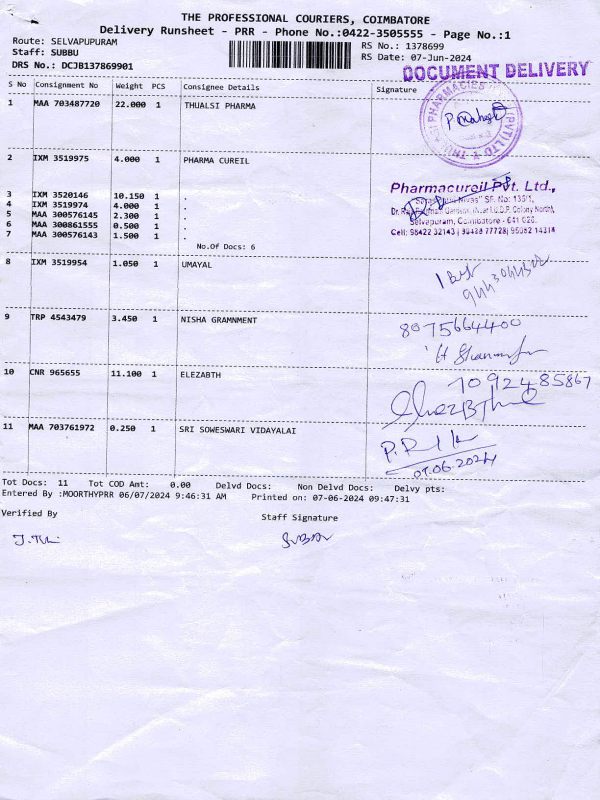 THE PROFESSIONAL COURIERS, COIMBATORE
Delivery Runsheet - PRR - Phone No.:0422-3505555 - Page No.:1
Route: SELVAPUPURAM
RS No.: 1378699
Staff: SUBBU
RS Date: 07-Jun-2024
DRS No.: DCJB137869901
DOCUMENT DELIVERY
S No Consignment No Weight PCS Consignee Details Signature
1 MAA 703487720 22.000 1 THUALSI PHARMA
2 IXM 3519975 4.000 1 PHARMA CUREIL
Pharmacureil Pvt. Ltd.,
3 IXM 3520146 10.150 1 .
4 IXM 3519974 4.000 1 .
5 MAA 300576145 2.300 1 .
6 MAA 300861555 0.500 1 .
7 MAA 300576143 1.500 1 .
Selvapuram, Coimbatore - 641 026.
No.Of Docs: 6
8 IXM 3519954 1.050 1 UMAYAL
9 TRP 4543479 3.450 1 NISHA GRAMNMENT
8075664400
10 CNR 965655 11.100 1 ELEZABTH
7092485867
11 MAA 703761972 0.250 1 SRI SOWESWARI VIDAYALAI
07.06.2024
Tot Docs: 11 Tot COD Amt: 0.00 Delvd Docs: Non Delvd Docs: Delvy pts:
Entered By :MOORTHYPRR 06/07/2024 9:46:31 AM Printed on: 07-06-2024 09:47:31
Verified By
Staff Signature